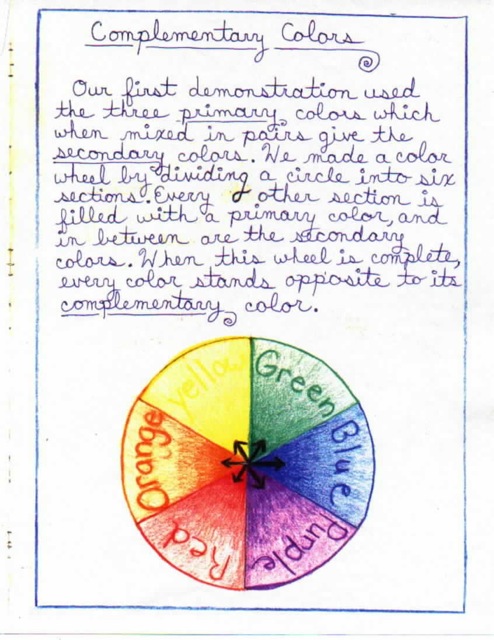 Complementary Colors
Our first demonstration used
the three primary colors which
when mixed in pairs give the
secondary colors. We made a color
wheel by dividing a circle into six
sections. Every other section is
filled with a primary color, and
in between are the secondary
colors. When this wheel is complete,
every color stands opposite to its
complementary color.
yellow
Green
Blue
Purple
Red
Orange